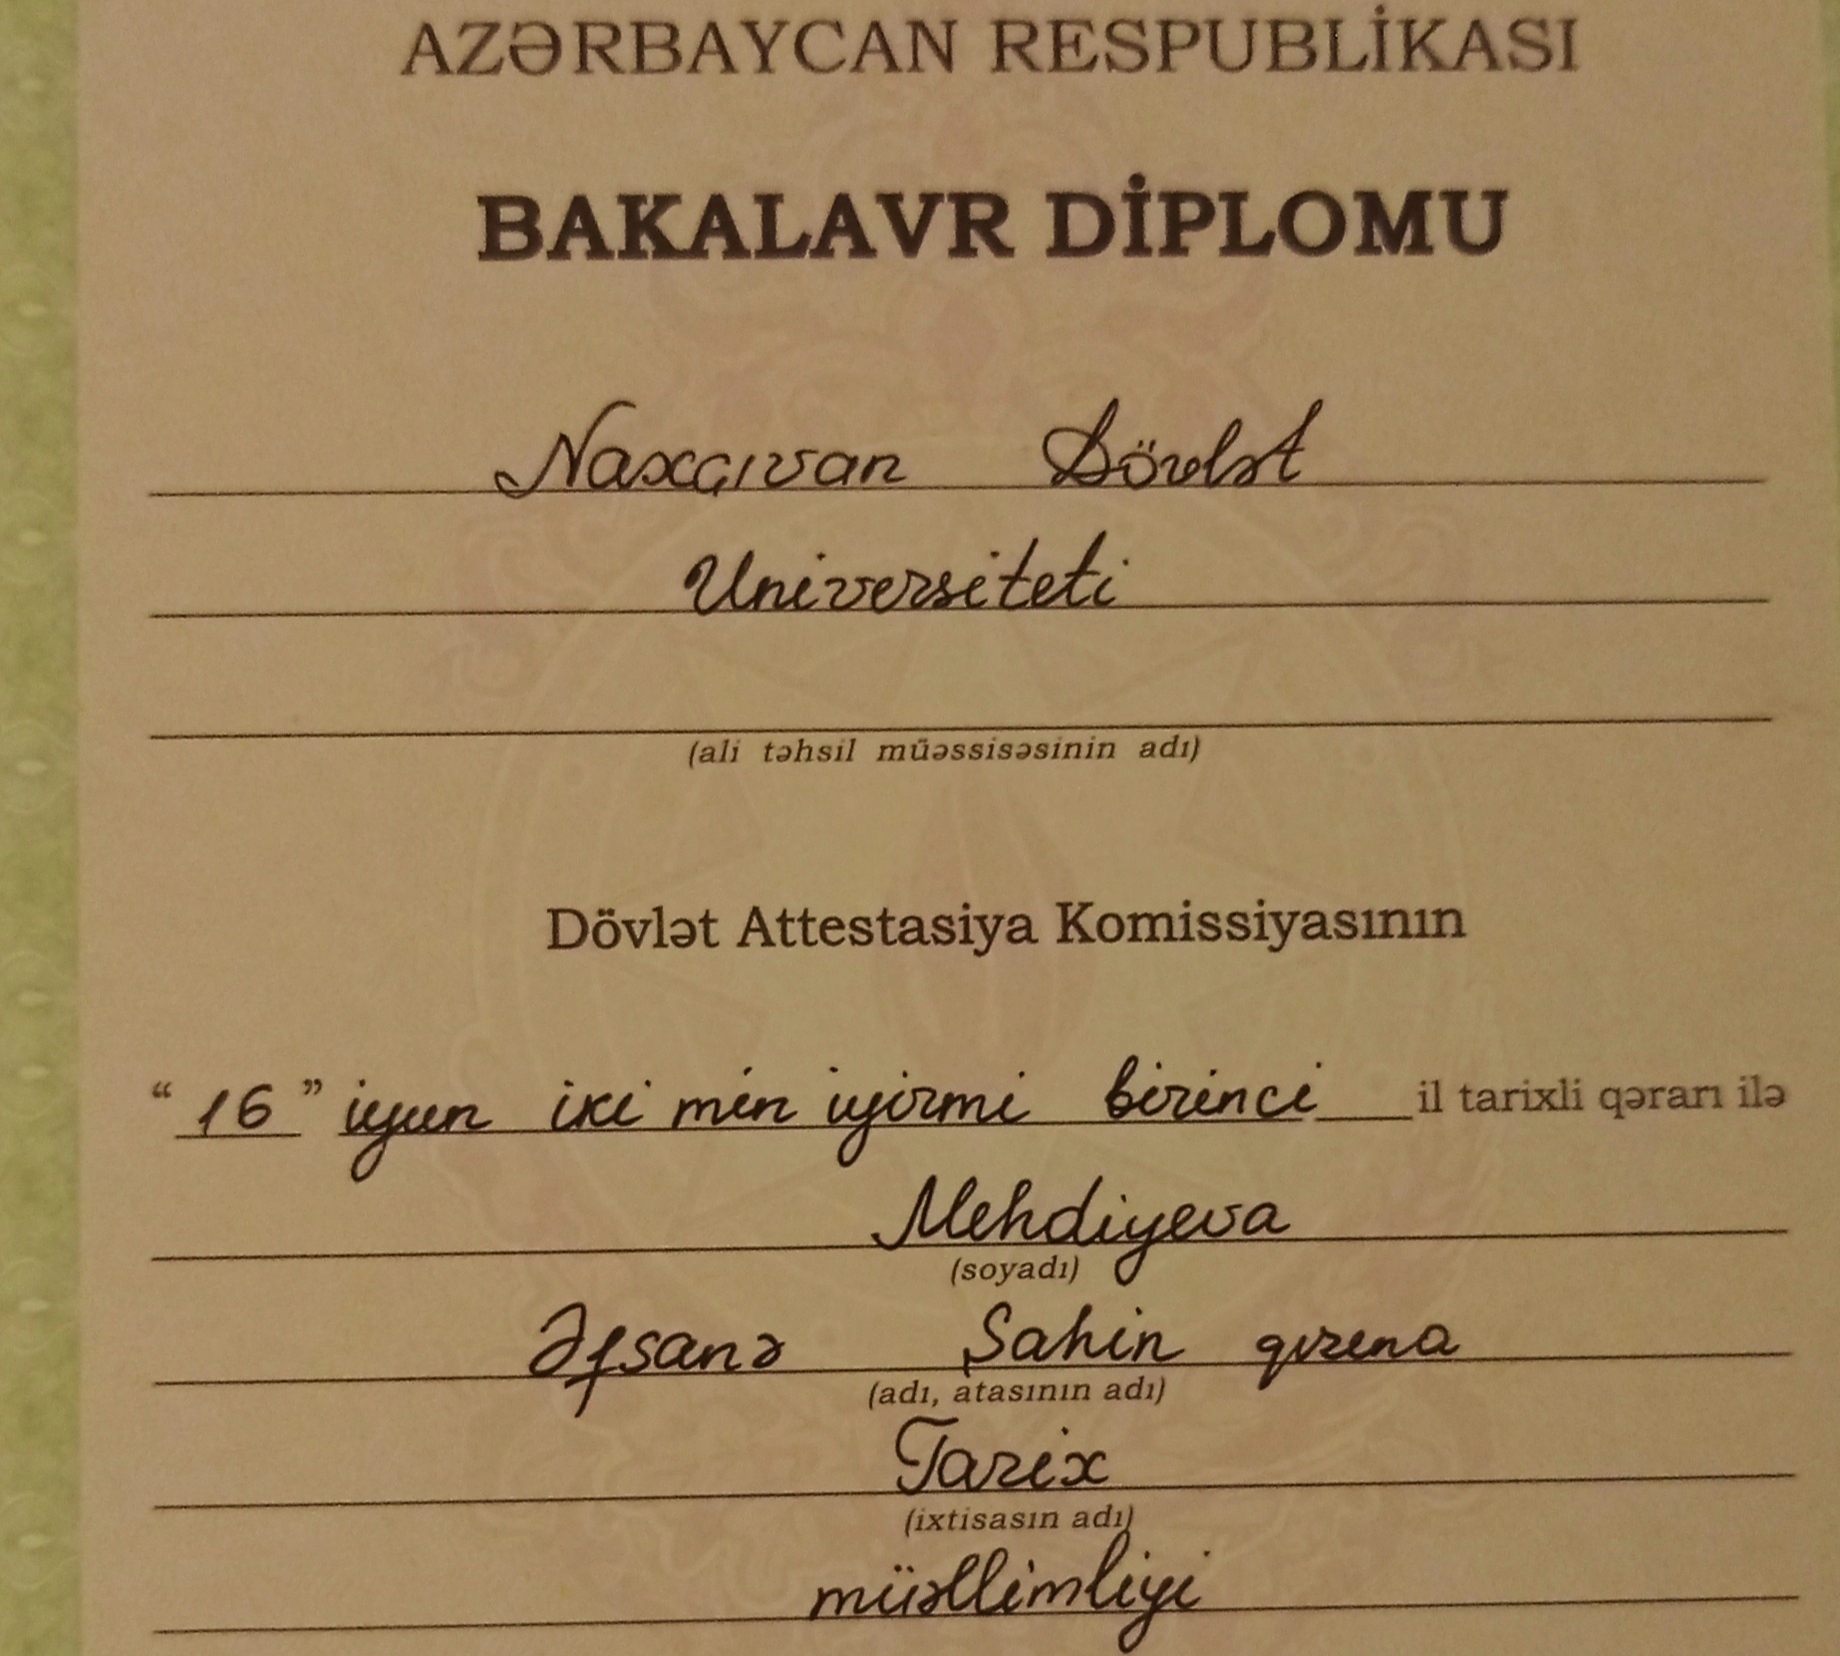 AZƏRBAYCAN RESPUBLİKASI
BAKALAVR DİPLOMU
Naxçıvan Dövlət
Universiteti
(ali təhsil müəssisəsinin adı)
Dövlət Attestasiya Komissiyasının
“16” iyun iki min iyirmi birinci il tarixli qərarı ilə
Mehdiyeva
(soyadı)
Əfsanə Şahin qızına
(adı, atasının adı)
Tarix
(ixtisasın adı)
müəllimliyi